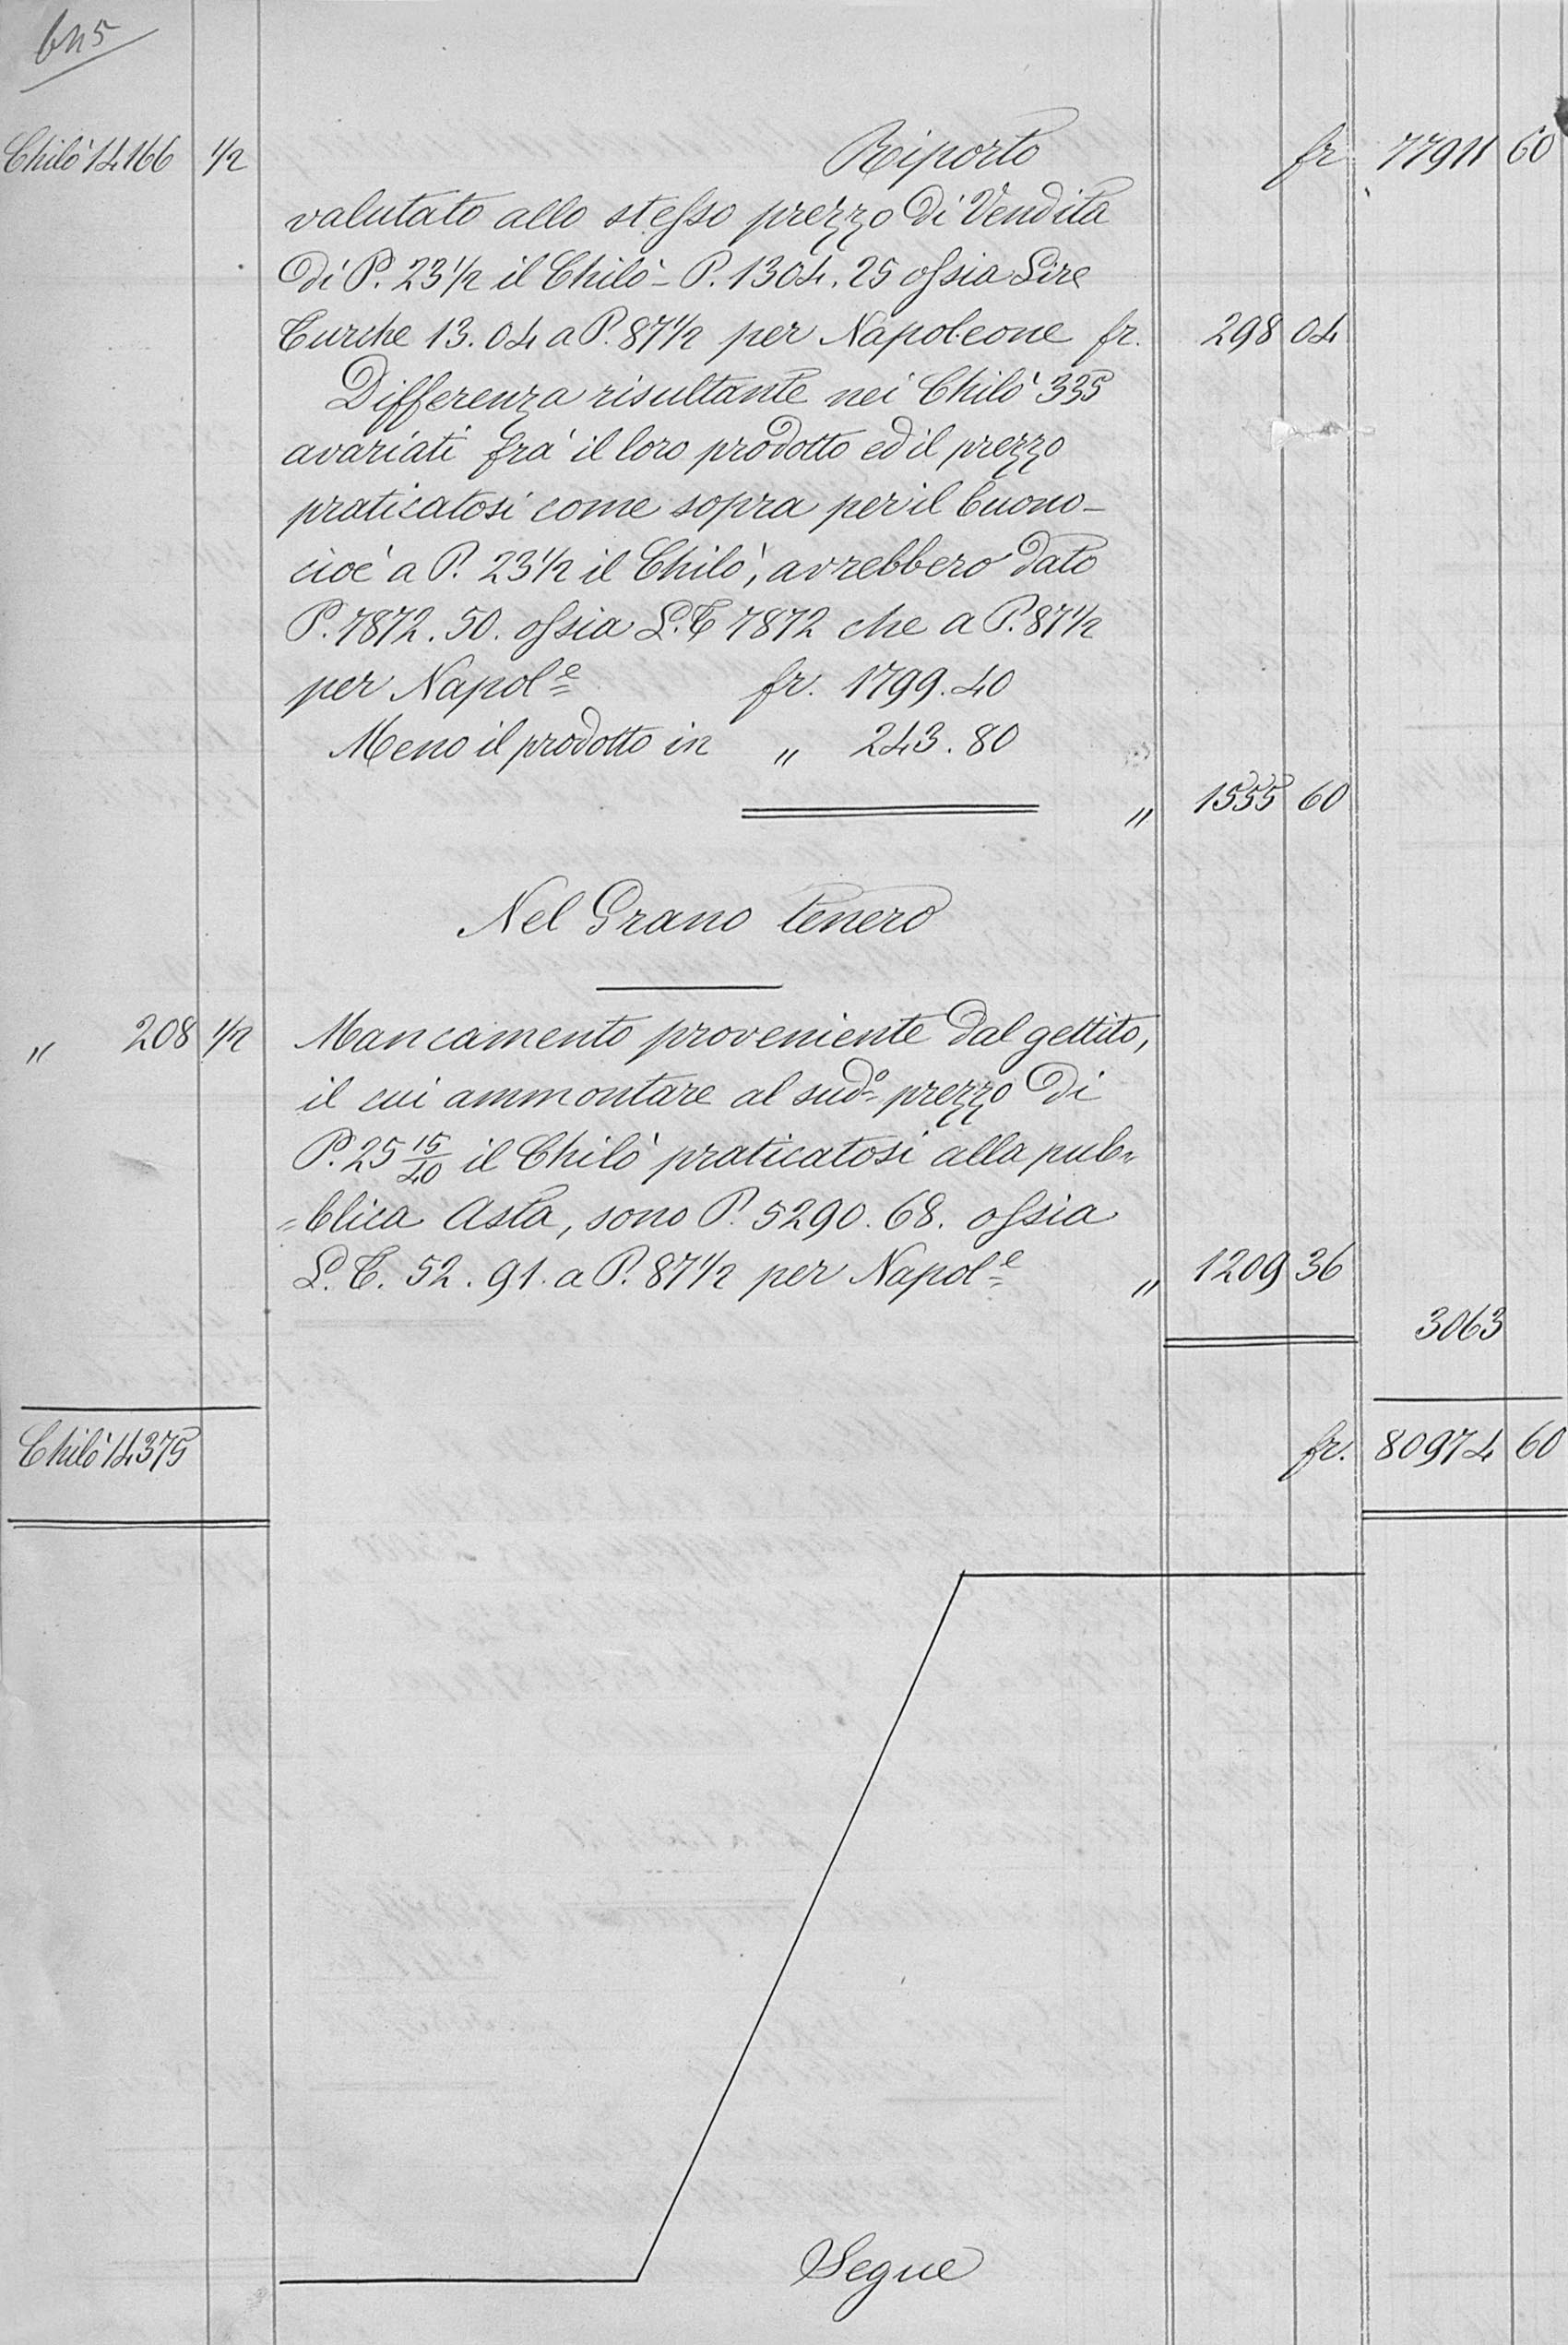 Chilò 14166 1/2 Riporto fr. 77911 60
valutato allo stesso prezzo di Vendita
di P. 23 1/2 il Chilò - P. 1304. 25 ossia Lire
Turche 13. 04 a P. 87 1/2 per Napoleone fr. 298 04
Differenza risultante nei Chilò 335
avariati frà il loro prodotto ed il prezzo
praticatosi come sopra per il buono -
cioè a P. 23 1/2 il Chilò, avrebbero dato
P. 7872. 50. ossia L. T 7872 che a P. 87 1/2
per Napol.e fr. 1799. 40
Meno il prodotto in " 243. 80
" 1555 60
Nel Grano tenero
" 208 1/2 Mancamento proveniente dal gettito,
il cui ammontare al sud.o prezzo di
P. 25 15/40 il Chilò praticatosi alla pub=
=blica Asta, sono P. 5290. 68. ossia
L. T. 52. 91. a P. 87 1/2 per Napol.e " 1209 36
3063
Chilò 14375 fr. 80974 60
Segue